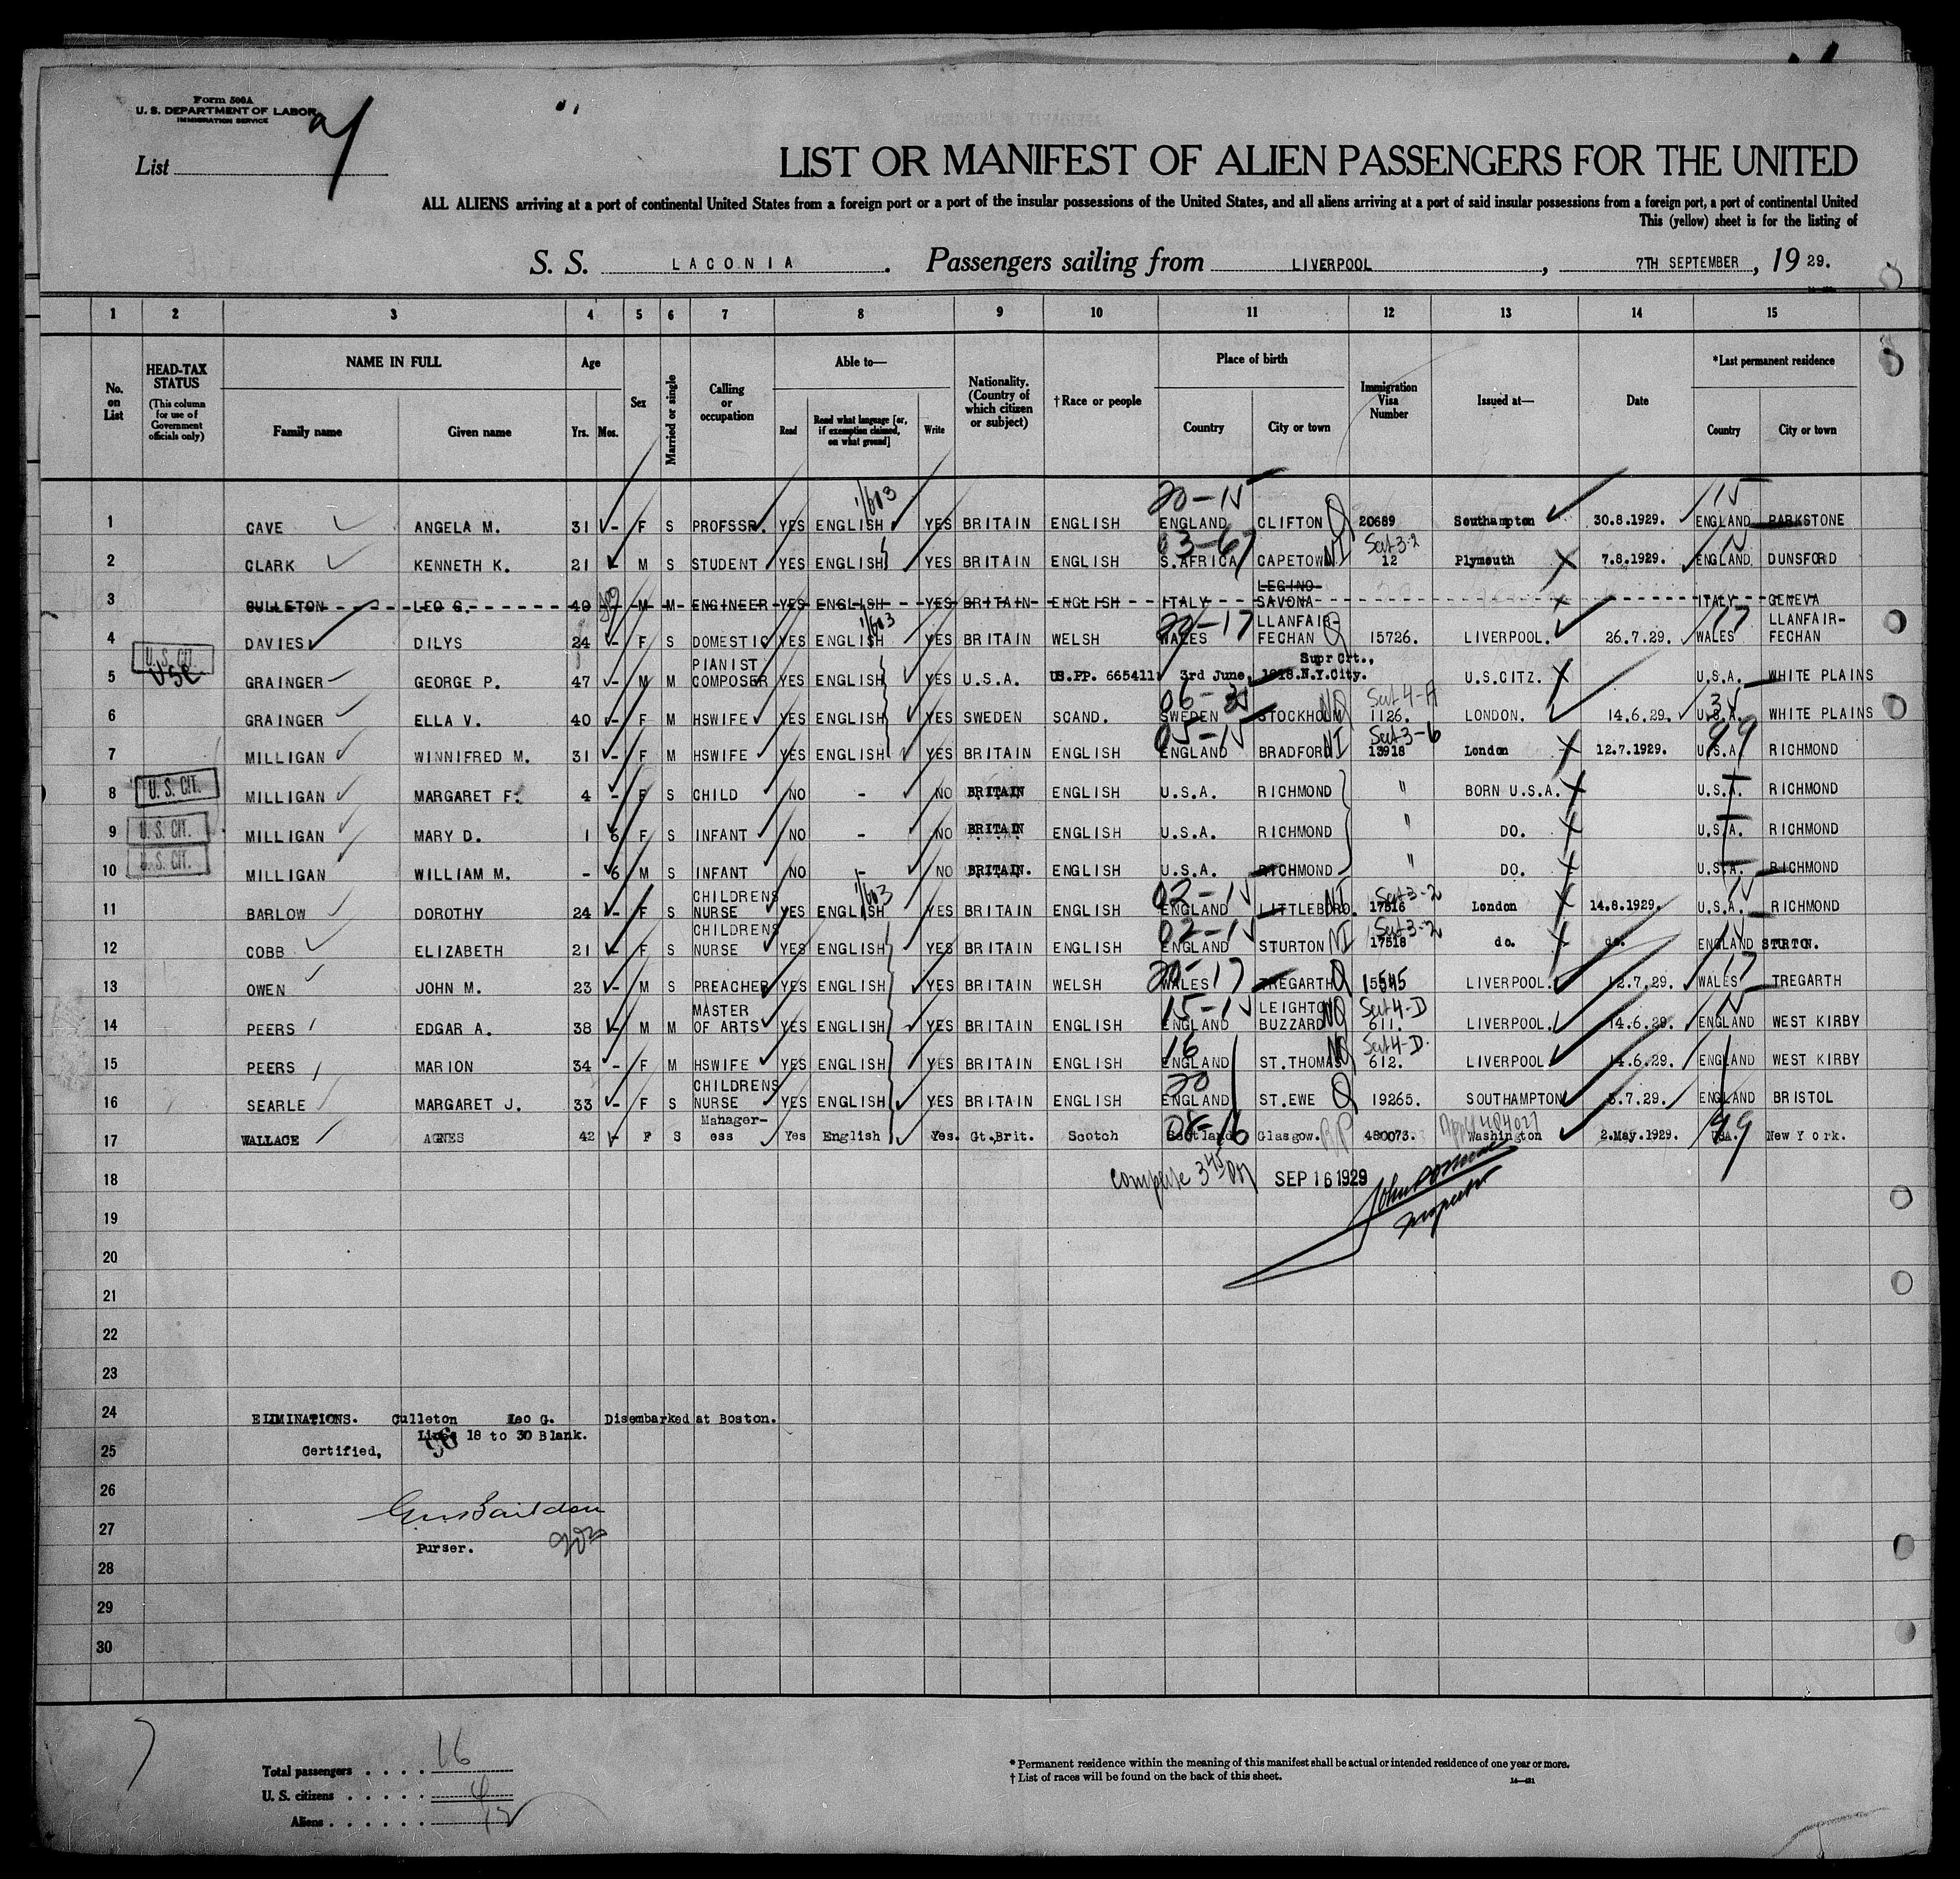 Form 500A
U. S. DEPARTMENT OF LABOR
IMMIGRATION SERVICE
List
LIST OR MANIFEST OF ALIEN PASSENGERS FOR THE UNITED
ALL ALIENS arriving at a port of continental United States from a foreign port or a port of the insular possessions of the United States, and all aliens arriving at a port of said insular possessions from a foreign port, a port of continental United
This (yellow) sheet is for the listing of
S. S. LACONIA . Passengers sailing from LIVERPOOL , 7TH SEPTEMBER , 19 29.
1 2 3 4 5 6 7 8 9 10 11 12 13 14 15
No. on List
HEAD-TAX STATUS (This column for use of Government officials only)
NAME IN FULL
Family name Given name
Age
Yrs. Mos.
Sex
Married or single
Calling or occupation
Able to—
Read Read what language [or, if exemption claimed, on what ground] Write
Nationality. (Country of which citizen or subject)
†Race or people
Place of birth
Country City or town
Immigration Visa Number
Issued at—
Date
*Last permanent residence
Country City or town
20-15 15
1 CAVE ANGELA M. 31 - F S PROFSSR. YES ENGLISH YES BRITAIN ENGLISH ENGLAND CLIFTON Q 20689 Southampton 30.8.1929. ENGLAND PARKSTONE
03-67 Sect 3-2
2 CLARK KENNETH K. 21 - M S STUDENT YES ENGLISH YES BRITAIN ENGLISH S.AFRICA CAPETOWN NI 12 Plymouth 7.8.1929. ENGLAND DUNSFORD
LEGINO
3 CULLETON LEO G. 40 - M M ENGINEER YES ENGLISH YES BRITAIN ENGLISH ITALY SAVONA ITALY GENEVA
20-17 LLANFAIR- 17 LLANFAIR-
4 DAVIES DILYS 24 - F S DOMESTIC YES ENGLISH YES BRITAIN WELSH WALES FECHAN Q 15726. LIVERPOOL. 26.7.29. WALES FECHAN
U. S. CIT.
USC
PIANIST Supr Crt.,
5 GRAINGER GEORGE P. 47 - M M COMPOSER YES ENGLISH YES U.S.A. US.PP. 665411 3rd June, 1918.N.Y.City. U.S.CITZ. U.S.A. WHITE PLAINS
Sect 4-A
6 GRAINGER ELLA V. 40 - F M HSWIFE YES ENGLISH YES SWEDEN SCAND. SWEDEN STOCKHOLM NQ 1126. LONDON. 14.6.29. U.S.A. WHITE PLAINS
05-15 Sect 3-6 99
7 MILLIGAN WINNIFRED M. 31 - F M HSWIFE YES ENGLISH YES BRITAIN ENGLISH ENGLAND BRADFORD NI 13918 London 12.7.1929. U.S.A. RICHMOND
U. S. CIT.
8 MILLIGAN MARGARET F. 4 - F S CHILD NO - NO BRITAIN ENGLISH U.S.A. RICHMOND " BORN U.S.A. U.S.A. RICHMOND
U. S. CIT.
9 MILLIGAN MARY D. 1 6 F S INFANT NO - NO BRITAIN ENGLISH U.S.A. RICHMOND " DO. U.S.A. RICHMOND
U. S. CIT.
10 MILLIGAN WILLIAM M. - 6 M S INFANT NO - NO BRITAIN. ENGLISH U.S.A. RICHMOND " DO. U.S.A. RICHMOND
CHILDRENS 02-15 Sect 3-2 15
11 BARLOW DOROTHY 24 - F S NURSE YES ENGLISH YES BRITAIN ENGLISH ENGLAND LITTLEBORO. NI 17516 London 14.8.1929. U.S.A. RICHMOND
CHILDRENS 02-15 Sect 3-2
12 COBB ELIZABETH 21 - F S NURSE YES ENGLISH YES BRITAIN ENGLISH ENGLAND STURTON NI 17518 do. do. ENGLAND STURTON.
20-17 17
13 OWEN JOHN M. 23 - M S PREACHER YES ENGLISH YES BRITAIN WELSH WALES TREGARTH Q 15545 LIVERPOOL. 12.7.29. WALES TREGARTH
MASTER 15-15 LEIGHTON Sect 4-D
14 PEERS EDGAR A. 38 - M M OF ARTS YES ENGLISH YES BRITAIN ENGLISH ENGLAND BUZZARD NQ 611. LIVERPOOL. 14.6.29. ENGLAND WEST KIRBY
16 Sect 4-D.
15 PEERS MARION 34 - F M HSWIFE YES ENGLISH YES BRITAIN ENGLISH ENGLAND ST.THOMAS NQ 612. LIVERPOOL 14.6.29. ENGLAND WEST KIRBY
CHILDRENS 20
16 SEARLE MARGARET J. 33 - F S NURSE YES ENGLISH YES BRITAIN ENGLISH ENGLAND ST.EWE Q 19265. SOUTHAMPTON 5.7.29. ENGLAND BRISTOL
Manager- 08-16 99
17 WALLACE AGNES 42 - F S ess Yes English Yes. Gt.Brit. Scotch Scotland Glasgow. RP 480073. Washington 2.May.1929. USA. New York.
18 SEP 16 1929
Inspector
19
20
21
22
23
24 ELIMINATIONS. Culleton Leo G. Disembarked at Boston.
Lines 18 to 30 Blank.
25 Certified,
96
26
27
Purser.
28
29
30
Total passengers . . . . 16
U. S. citizens . . . . . 4
Aliens . . . . . . 12
* Permanent residence within the meaning of this manifest shall be actual or intended residence of one year or more.
† List of races will be found on the back of this sheet.